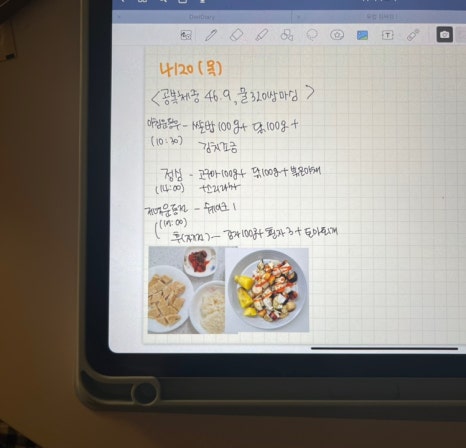 4/20 (목)
<공복체중 46.9, 물 320 마심>
아침운동후 - 쌀밥 100g + 닭 100g +
(10:30) 김치조금
점심 - 고구마 100g + 닭 100g + 볶은야채
(14:00)
저녁운동전 - 쉐이크 1
후(저녁) - 감자 100g + 흰자 3 + 토마토 2개